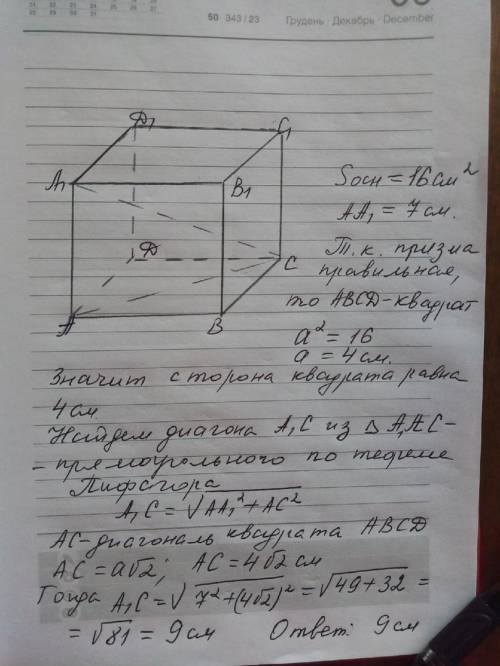 50 343/23 Грудень · Декабрь · December
Д1 С1
А1 В1
Sосн = 16 см²
АА₁ = 7 см.
Д С
Т.к. призма
правильная,
то АВСD-квадрат
А В
a² = 16
a = 4 см.
Значит сторона квадрата равна
4 см
Найдем диагона А₁С из △ А₁АС-
- прямоугольного по теореме
Пифагора
А₁С = √АА₁² + АС²
АС-диагональ квадрата АВСD
АС = a√2; АС = 4√2 см
Тогда А₁С = √7² + (4√2)² = √49 + 32 =
= √81 = 9 см Ответ: 9 см